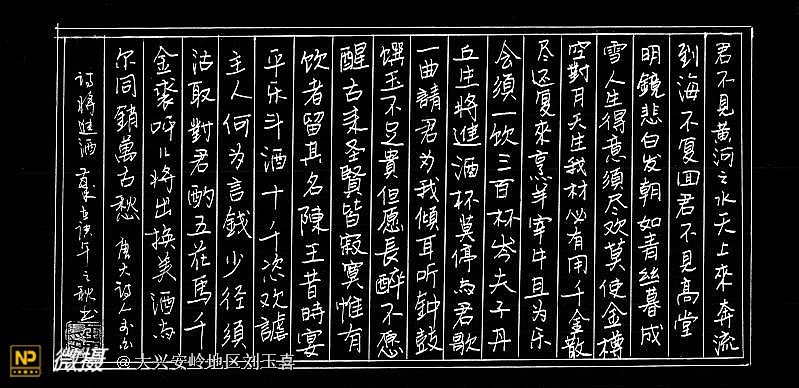 君不见黄河之水天上來奔流
到海不复回君不见高堂
明鏡悲白发朝如青丝暮成
雪人生得意須尽欢莫使金樽
空對月天生我材必有用千金散
尽还复來烹羊宰牛且为乐
会須一饮三百杯岑夫子丹
丘生將進酒杯莫停与君歌
一曲請君为我傾耳听钟鼓
馔玉不足貴但愿長醉不愿
醒古来圣賢皆寂寞惟有
饮者留其名陳王昔時宴
平乐斗酒十千恣欢謔
主人何为言錢少径須
沽取對君酌五花馬千
金裘呼儿將出换美酒与
尔同銷萬古愁 唐大诗人
诗將進酒 之秋
NP 微摄 @大兴安岭地区刘玉喜